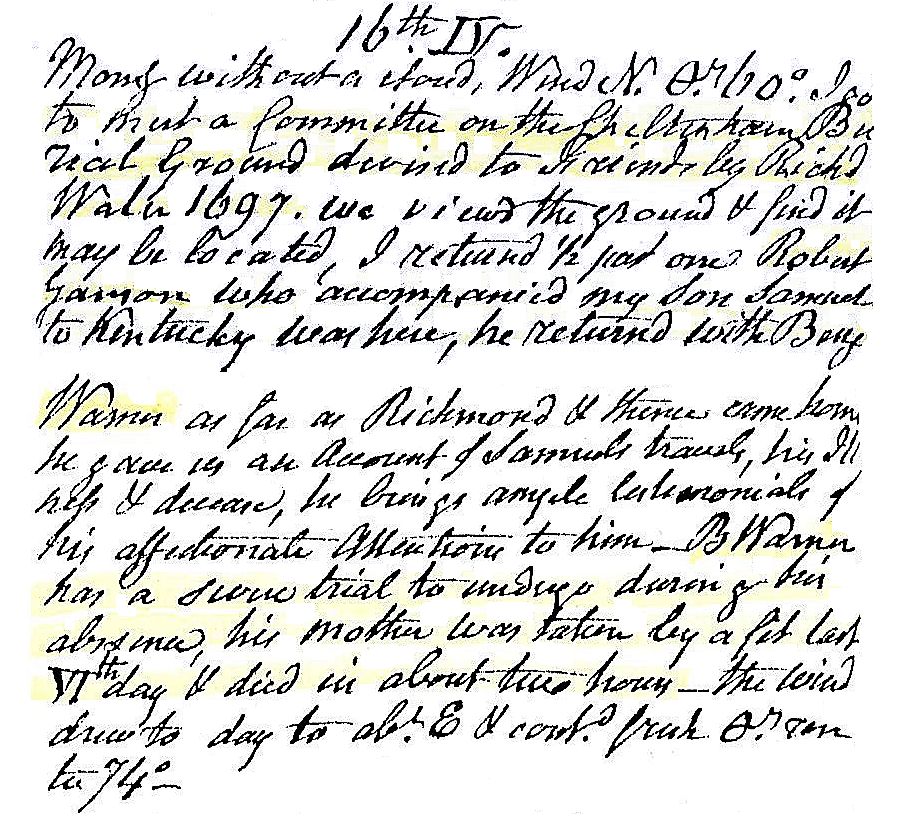 16th IV.
Morng without a cloud, Wind N. Or 60° I go
to meet a Committee on the Cheltenham Bu
rial Ground devised to Friends by Richd
Waln 1697. we viewd the ground & find it
may be located, I returnd ½ past one Robert
who accompanied my Son Samuel
to Kentucky was here, he returnd with Benj
Warner as far as Richmond & thence came home
he gave us an Account of Samuels travels, his Ill
ness & decease, he brings ample testimonials of
his affectionate Attentions to him — B Warner
has a severe trial to undergo during his
absence, his mother was taken by a fit last
VIth day & died in about two hours — the wind
drew to day to abt. E & contd. fresh Or rose
to 74° —